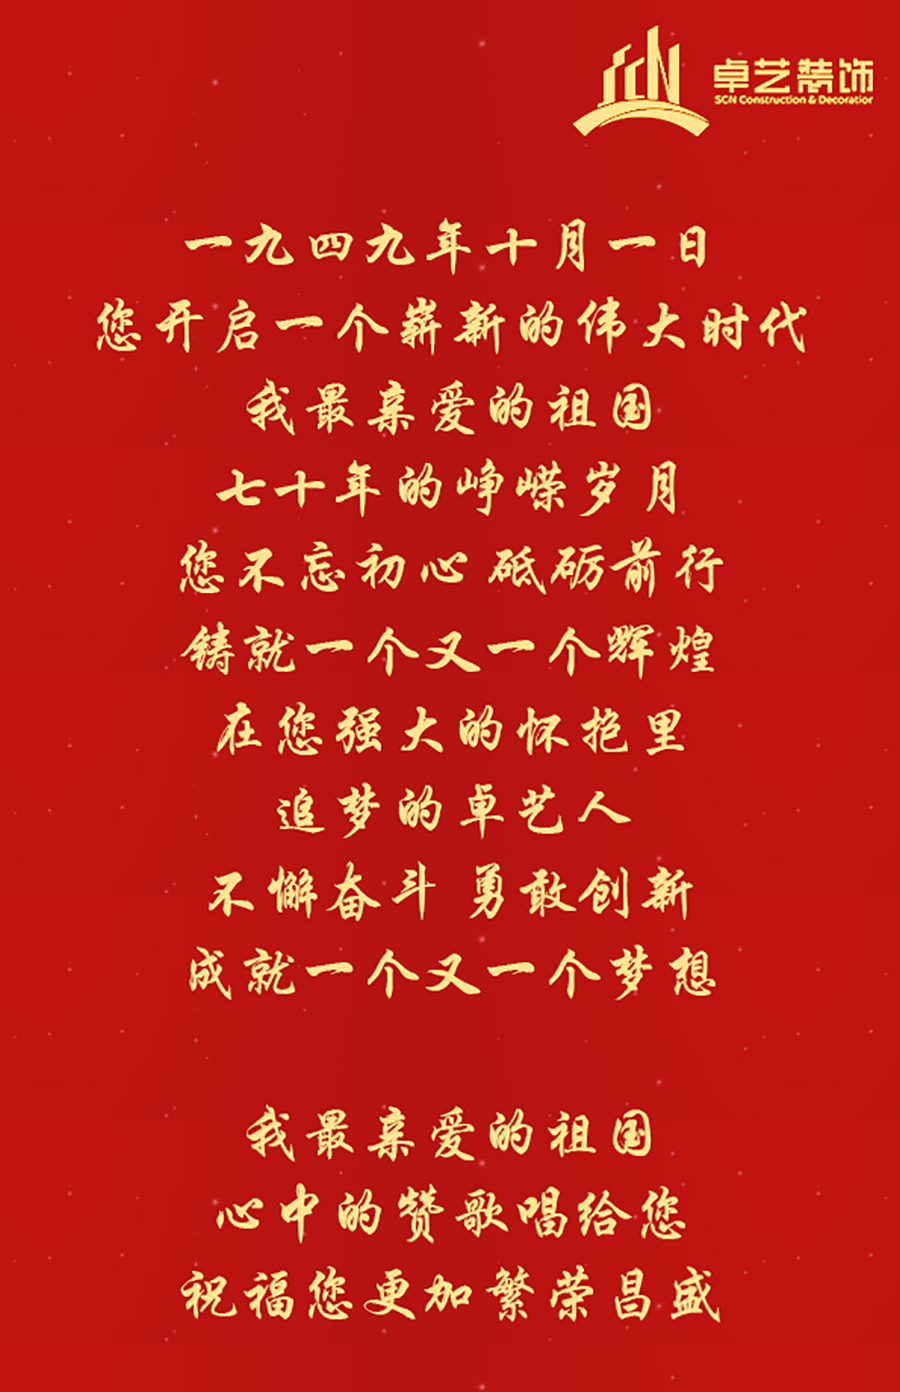 卓艺装饰
SCN Construction & Decoration
一九四九年十月一日
您开启一个崭新的伟大时代
我最亲爱的祖国
七十年的峥嵘岁月
您不忘初心 砥砺前行
铸就一个又一个辉煌
在您强大的怀抱里
追梦的卓艺人
不懈奋斗 勇敢创新
成就一个又一个梦想
我最亲爱的祖国
心中的赞歌唱给您
祝福您更加繁荣昌盛